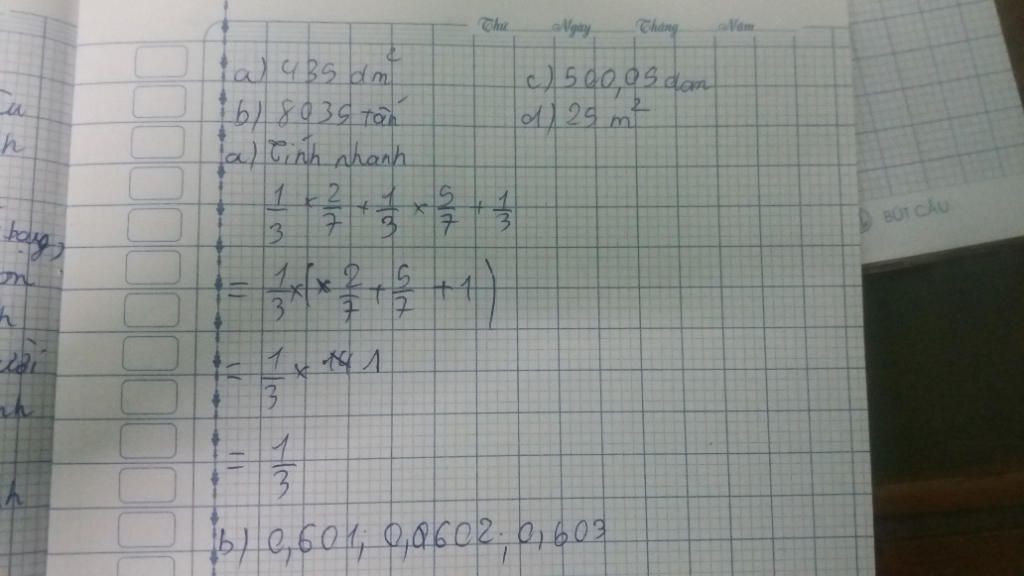 Thứ Ngày Tháng Năm
a) 435 dm² c) 500,05 dam
b) 8035 tấn d) 25 m²
a) Tính nhanh
1/3 × 2/7 + 1/3 × 5/7 + 1/3
= 1/3 × (× 2/7 + 5/7 + 1)
= 1/3 × 1
= 1/3
b) 0,601; 0,0602; 0,603
BÚT CẦU